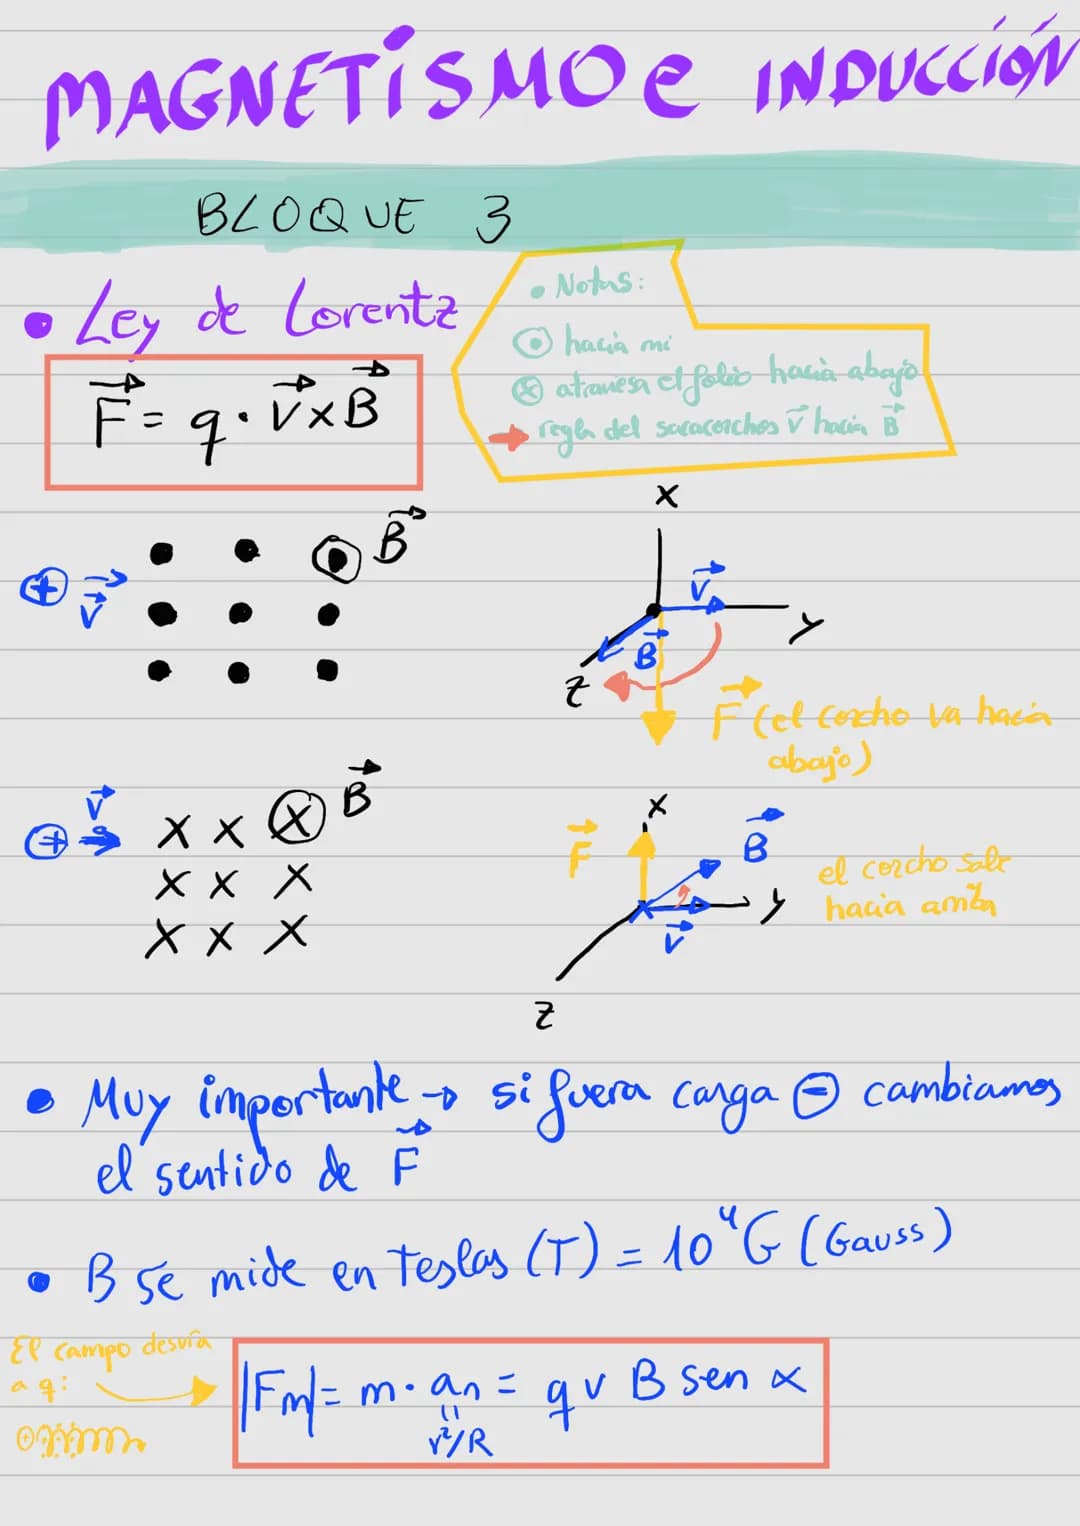 MAGNETISMO e INDUCCIÓN
BLOQUE 3
• Ley de Lorentz
F = q · v x B
• Notas:
⊙ hacia mi
⊗ atraviesa el folio hacia abajo
→ regla del sacacorchos v hacia B
B
+ v
x
v
y
B
z
F (el corcho va hacia
abajo)
B
v
+
x x ⊗
x x x
x x x
x
F
B
y
v
z
el corcho sale
hacia arriba
• Muy importante → si fuera carga ⊖ cambiamos
el sentido de F
• B se mide en Teslas (T) = 10⁴ G (Gauss)
El campo desvía
a q:
|Fm| = m · an = q v B sen α
v²/R